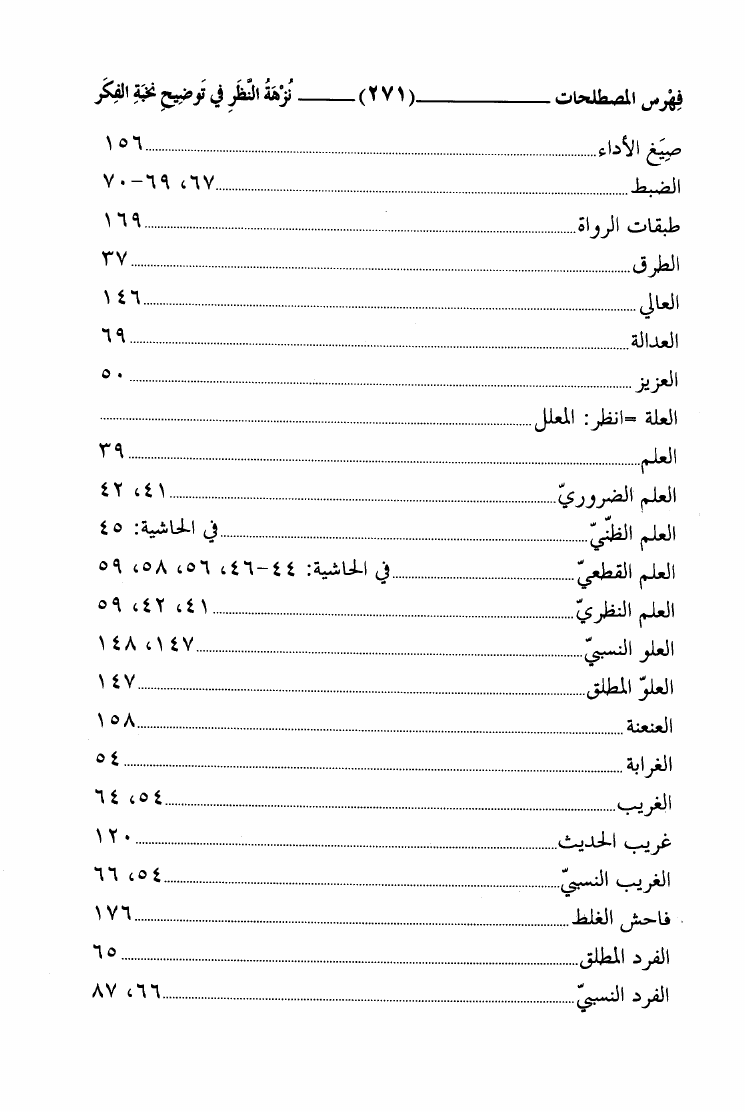 فِهْرس المصطلحات ــــــــ (٢٧١) ــــــــ نُزْهَةُ النَّظَرِ في تَوضِيحِ نخبَةِ الفِكَر
صِيَغ الأداء ........ ١٥٦
الضبط ........ ٦٧، ٦٩-٧٠
طبقات الرواة ........ ١٦٩
الطرق ........ ٣٧
العالي ........ ١٤٦
العدالة ........ ٦٩
العزيز ........ ٥٠
العلة =انظر: المعلل ........
العلم ........ ٣٩
العلم الضروريّ ........ ٤١، ٤٢
العلم الظنّيّ ........ في الحاشية: ٤٥
العلم القطعيّ ........ في الحاشية: ٤٤-٤٦، ٥٦، ٥٨، ٥٩
العلم النظريّ ........ ٤١، ٤٢، ٥٩
العلو النسبيّ ........ ١٤٧، ١٤٨
العلوّ المطلق ........ ١٤٧
العنعنة ........ ١٥٨
الغرابة ........ ٥٤
الغريب ........ ٥٤، ٦٤
غريب الحديث ........ ١٢٠
الغريب النسبيّ ........ ٥٤، ٦٦
فاحش الغلط ........ ١٧٦
الفرد المطلق ........ ٦٥
الفرد النسبيّ ........ ٦٦، ٨٧